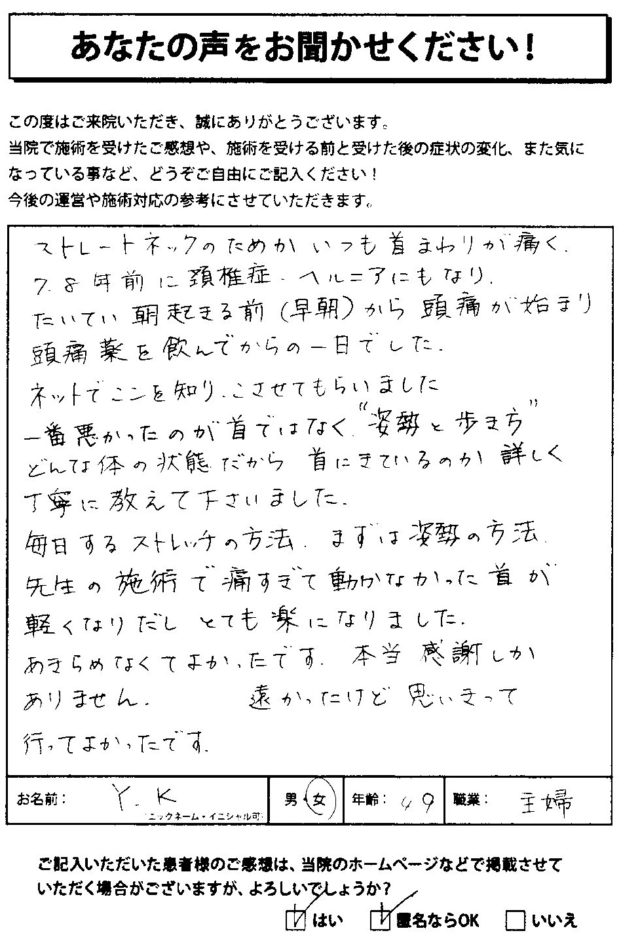 あなたの声をお聞かせください！
この度はご来院いただき、誠にありがとうございます。
当院で施術を受けたご感想や、施術を受ける前と受けた後の症状の変化、また気に
なっている事など、どうぞご自由にご記入ください！
今後の運営や施術対応の参考にさせていただきます。
ストレートネックのためか いつも首まわりが痛く、
7.8年前に頚椎症・ヘルニアにもなり、
たいてい 朝起きる前(早朝)から 頭痛が始まり
頭痛薬を飲んでからの一日でした。
ネットでここを知り、こさせてもらいました
一番悪かったのが首ではなく、"姿勢と歩き方"
どんな体の状態だから 首にきているのか 詳しく
丁寧に教えて下さいました。
毎日するストレッチの方法、まずは姿勢の方法、
先生の施術で痛すぎて動かなかった首が
軽くなりだし とても楽になりました。
あきらめなくてよかったです。本当 感謝しか
ありません。 遠かったけど 思いきって
行ってよかったです。
お名前： Y.K 男・女 年齢： 49 職業： 主婦
ニックネーム・イニシャル可
ご記入いただいた患者様のご感想は、当院のホームページなどで掲載させて
いただく場合がございますが、よろしいでしょうか？
☑はい ☑匿名ならOK □いいえ